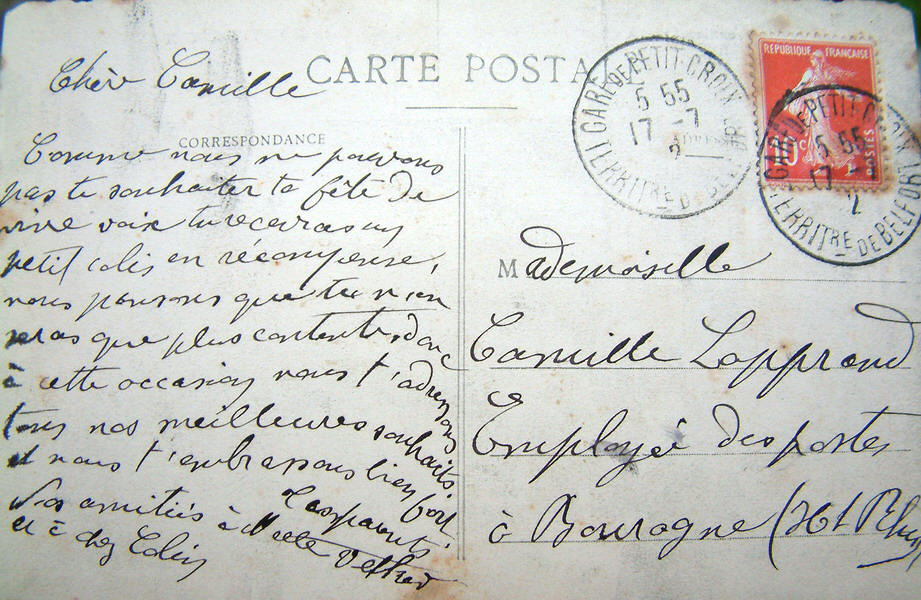 CARTE POSTA
Chère Camille
CORRESPONDANCE
Comme nous ne pouvons
pas te souhaiter ta fête de
vive voix tu recevras un
petit colis en récompense,
nous pensons que tu n'en
seras que plus contente, donc
à cette occasion nous t'adressons
tous nos meilleures souhaits
et nous t'embrassons bien fort.
Tes parents
Nos amitiés à Melle
et à chez Colin
GARE DE PETIT-CROIX
5 55
17 - 7
2
TERRITRE DE BELFORT
REPUBLIQUE FRANÇAISE
10 c
POSTES
GARE DE PETIT-CROIX
5 55
17 - 7
2
TERRITRE DE BELFORT
ADRESSE
Mademoiselle
Camille Lapprand
Employé des postes
à Bourogne (Ht Rhin